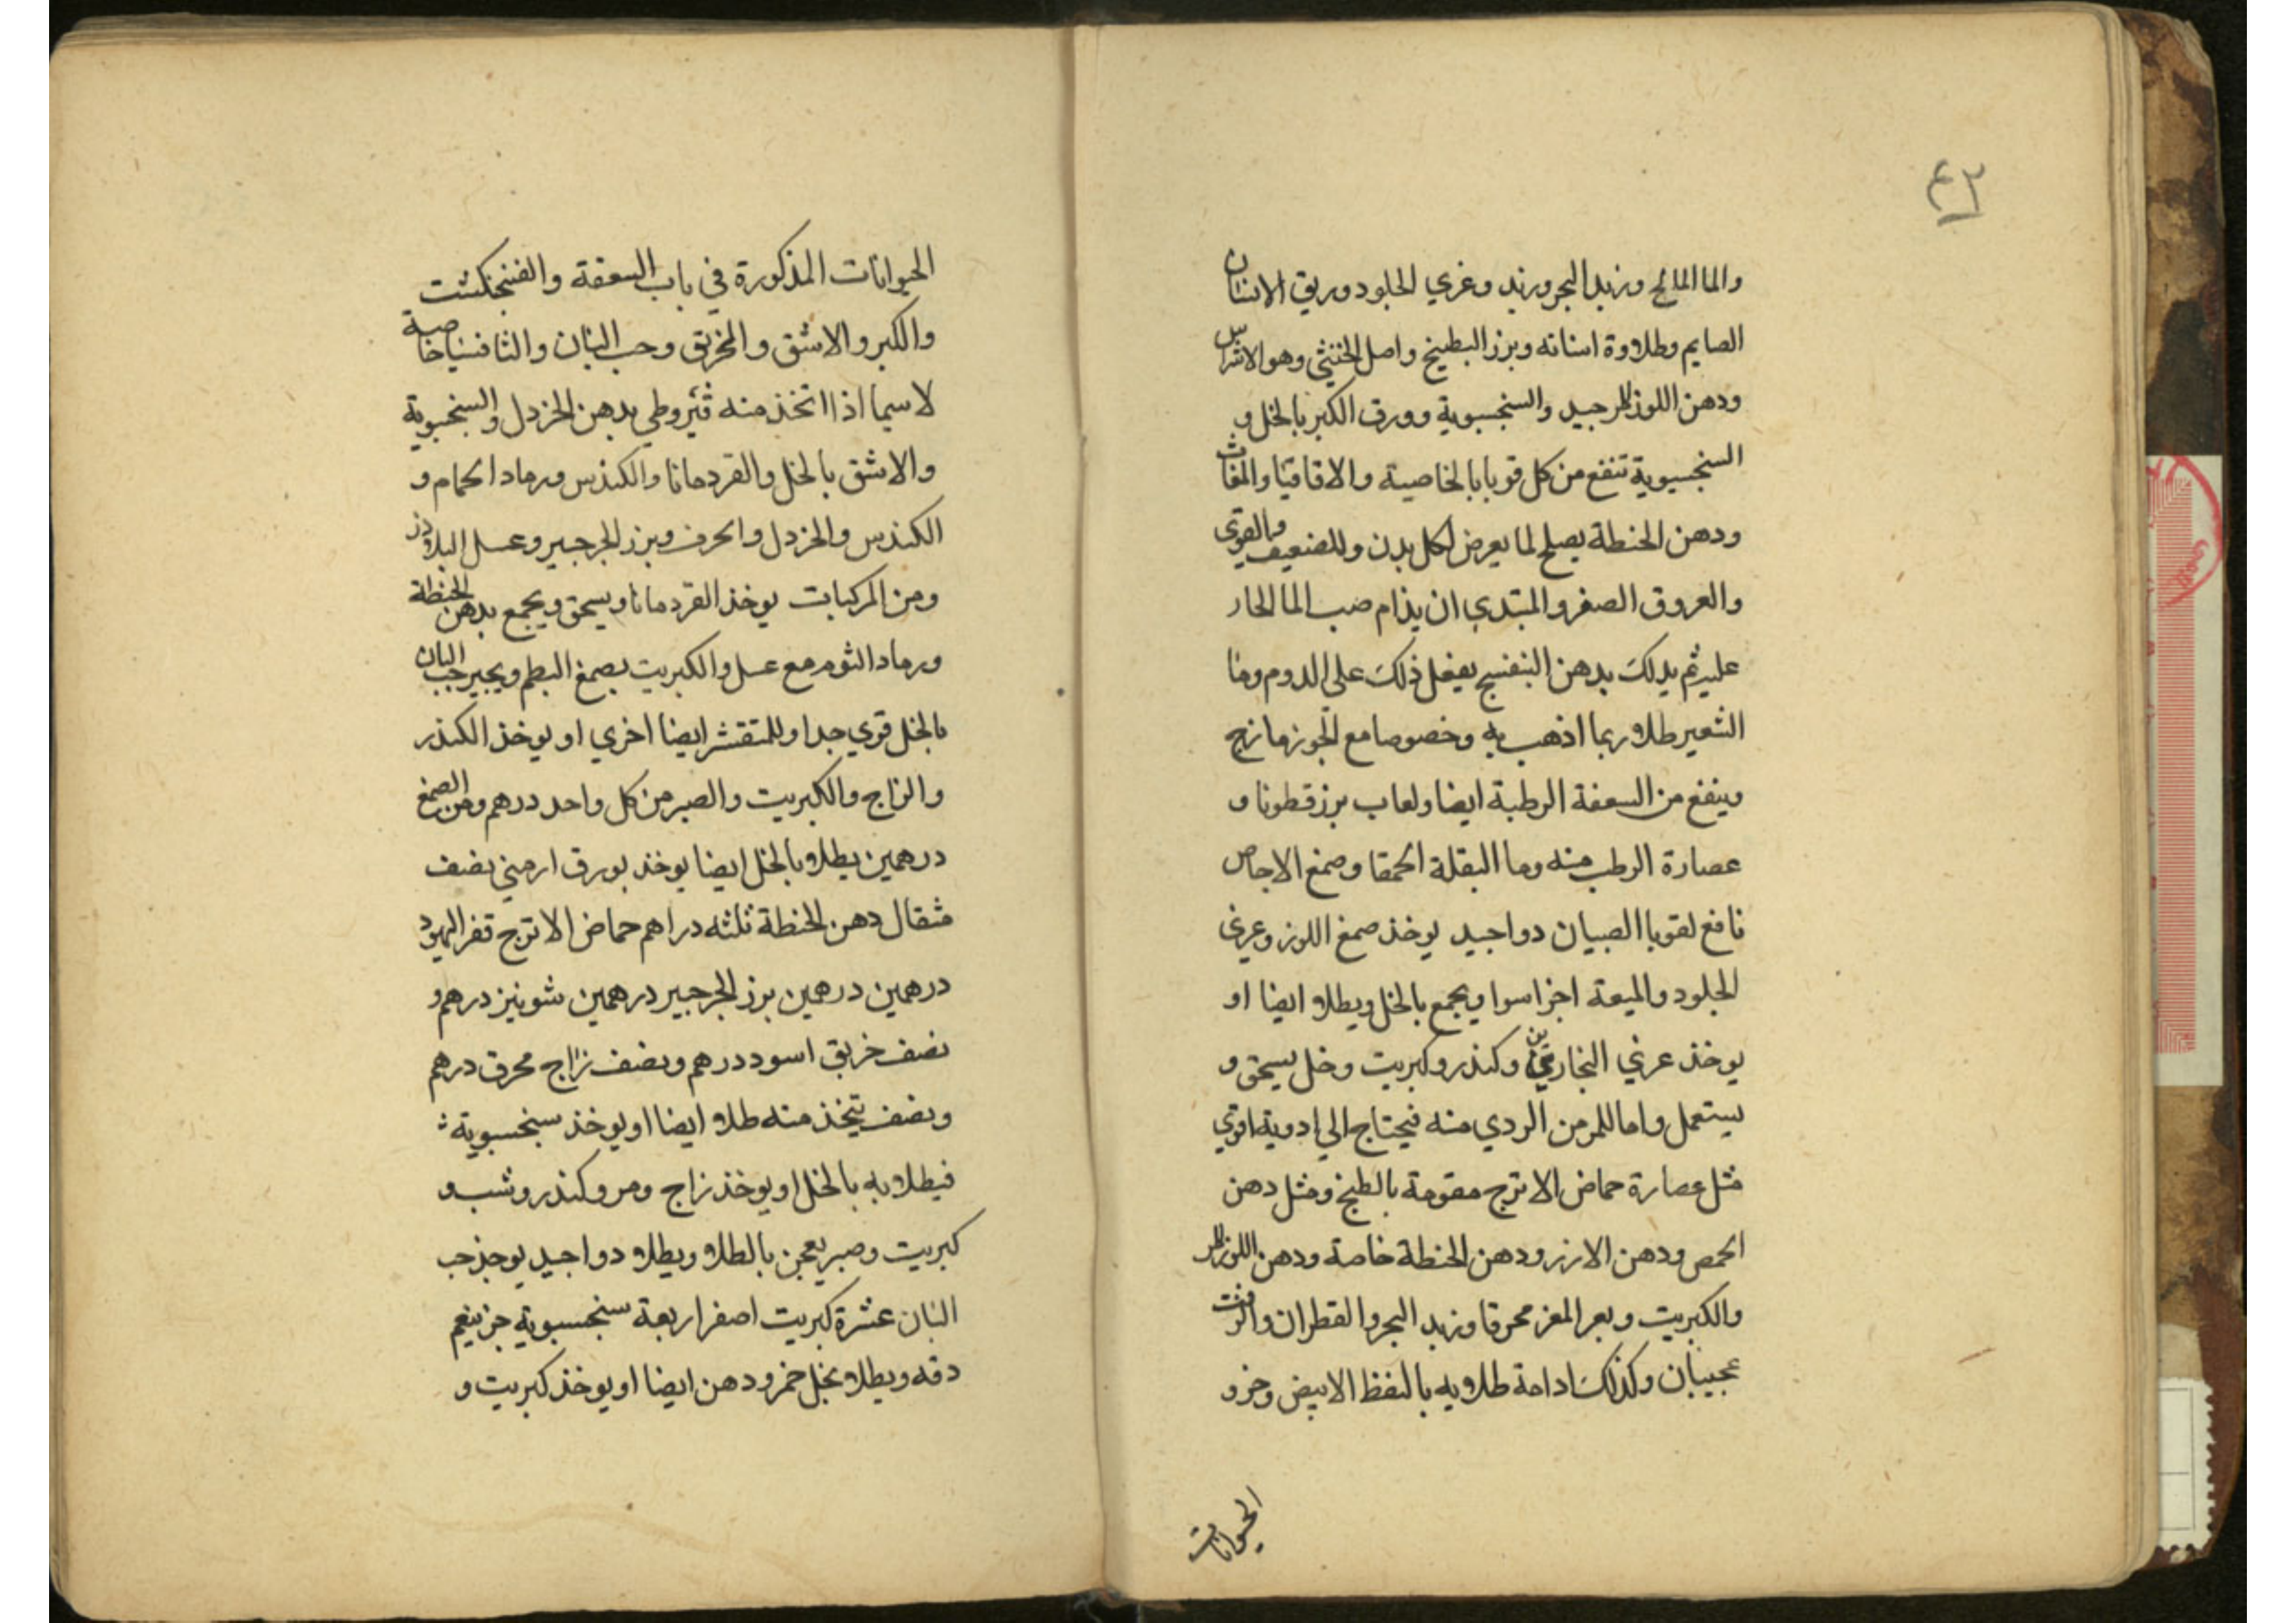 ٤٣
والما المالح وزبد البحر وزبد وغري الجلود وريق الانسان
الصايم وطلاوة اسنانه وبزر البطيخ واصل الخنثي وهو الاشراس
ودهن اللوز المر جيد والسنجسبوية وورق الكبر بالخل و
السنجسبوية تنفع من كل قوبا بالخاصية والاقاقيا والمغاث
ودهن الحنطة يصلح لما يعرض لكل بدن وللضعيف والقوي
والعروق الصفر والمبتدي ان يذام صب الما الحار
عليه ثم يدلك بدهن البنفسج يفعل ذلك علي الدوم وما
الشعير طلا ربما اذهب به وخصوصا مع الجوزمازج
وينفع من السعفة الرطبة ايضا ولعاب بزرقطونا و
عصارة الرطب منه وما البقلة الحمقا وصمغ الاجاص
نافع لقوبا الصبيان دوا جيد يوخذ صمغ اللوز وغري
الجلود والميعة اجزا سوا ويجمع بالخل ويطلا ايضا او
يوخذ غري النجارين وكندر وكبريت وخل يسحق و
يستعمل واما المزمن الردي منه فيحتاج الي ادوية اقوي
مثل عصارة حماض الاترج مقومة بالطبخ ومثل دهن
الحمص ودهن الارز ودهن الحنطة خاصة ودهن اللوز المر
والكبريت وبعر المعز محرقا وزبد البحر والقطران والزفت
عجيبان وكذلك ادامة طلايه بالنفط الابيض وخرو
الحيوانات
الحيوانات المذكورة في باب السعفة والفنجنكشت
والكبر والاشق والخربق وحب البان والثافسيا خاصة
لا سيما اذا اتخذ منه قيروطي بدهن الخردل والسنجسبوية
والاشق بالخل والقردمانا والكندس ورماد الحمام و
الكندس والخردل والحرف وبزر الجرجير وعسل البلادر
ومن المركبات يوخذ القردمانا ويسحق ويجمع بدهن الحنطة
ورماد الثوم مع عسل والكبريت بصمغ البطم وبجير حب البان
بالخل قوي جدا وللمتقشر ايضا اخري او يوخذ الكندر
والزاج والكبريت والصبر من كل واحد درهم ومن الصمغ
درهمين يطلا بالخل ايضا يوخذ بورق ارمني نصف
مثقال دهن الحنطة ثلثه دراهم حماض الاترج قفر اليهود
درهمين درهمين بزر الجرجير درهمين شونيز درهم و
نصف خربق اسود درهم ونصف زاج محرق درهم
ونصف يتخذ منه طلا ايضا او يوخذ سنجسبوية
فيطلا به بالخل او يوخذ زاج ومر وكندر وشب و
كبريت وصبر يعجن بالطلا ويطلا دوا جيد يوخذ حب
البان عشرة كبريت اصفر اربعة سنجسبوية جز ينعم
دقه ويطلا بخل خمر ودهن ايضا او يوخذ كبريت و